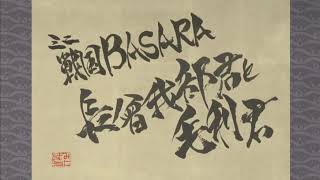 ミニ
戦国BASARA
長曾我部君と
毛利君